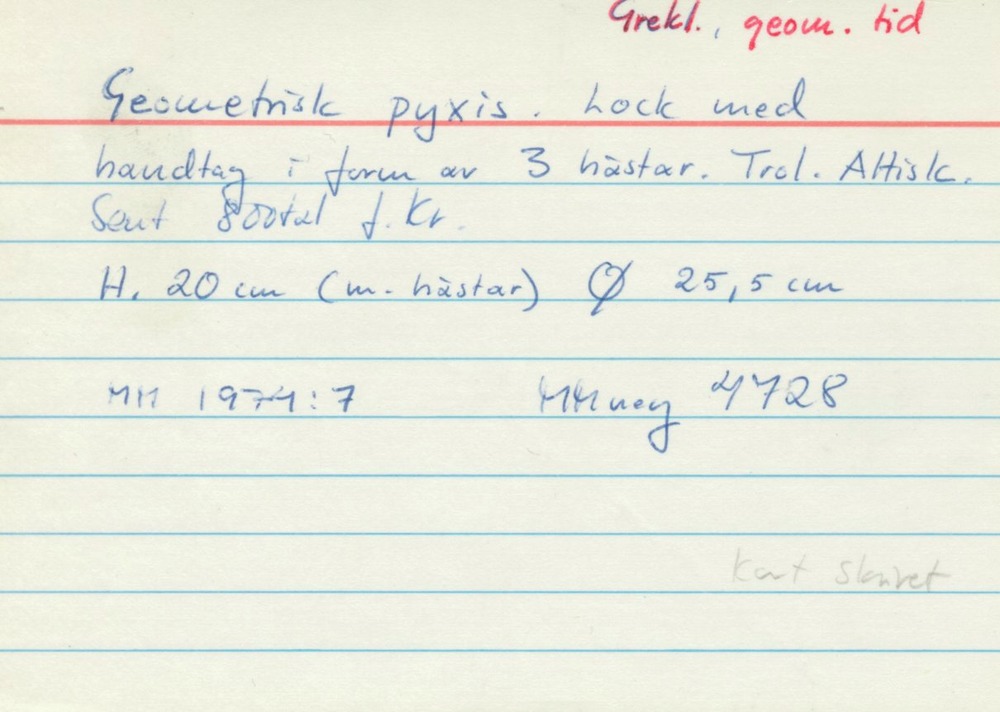 Grekl., geom. tid
Geometrisk pyxis. Lock med
handtag i form av 3 hästar. Trol. Attisk.
Sent 800tal f.Kr.
H. 20 cm (m. hästar) Ø 25,5 cm
MM 1974:7 MMneg 4728
Kort skrivet